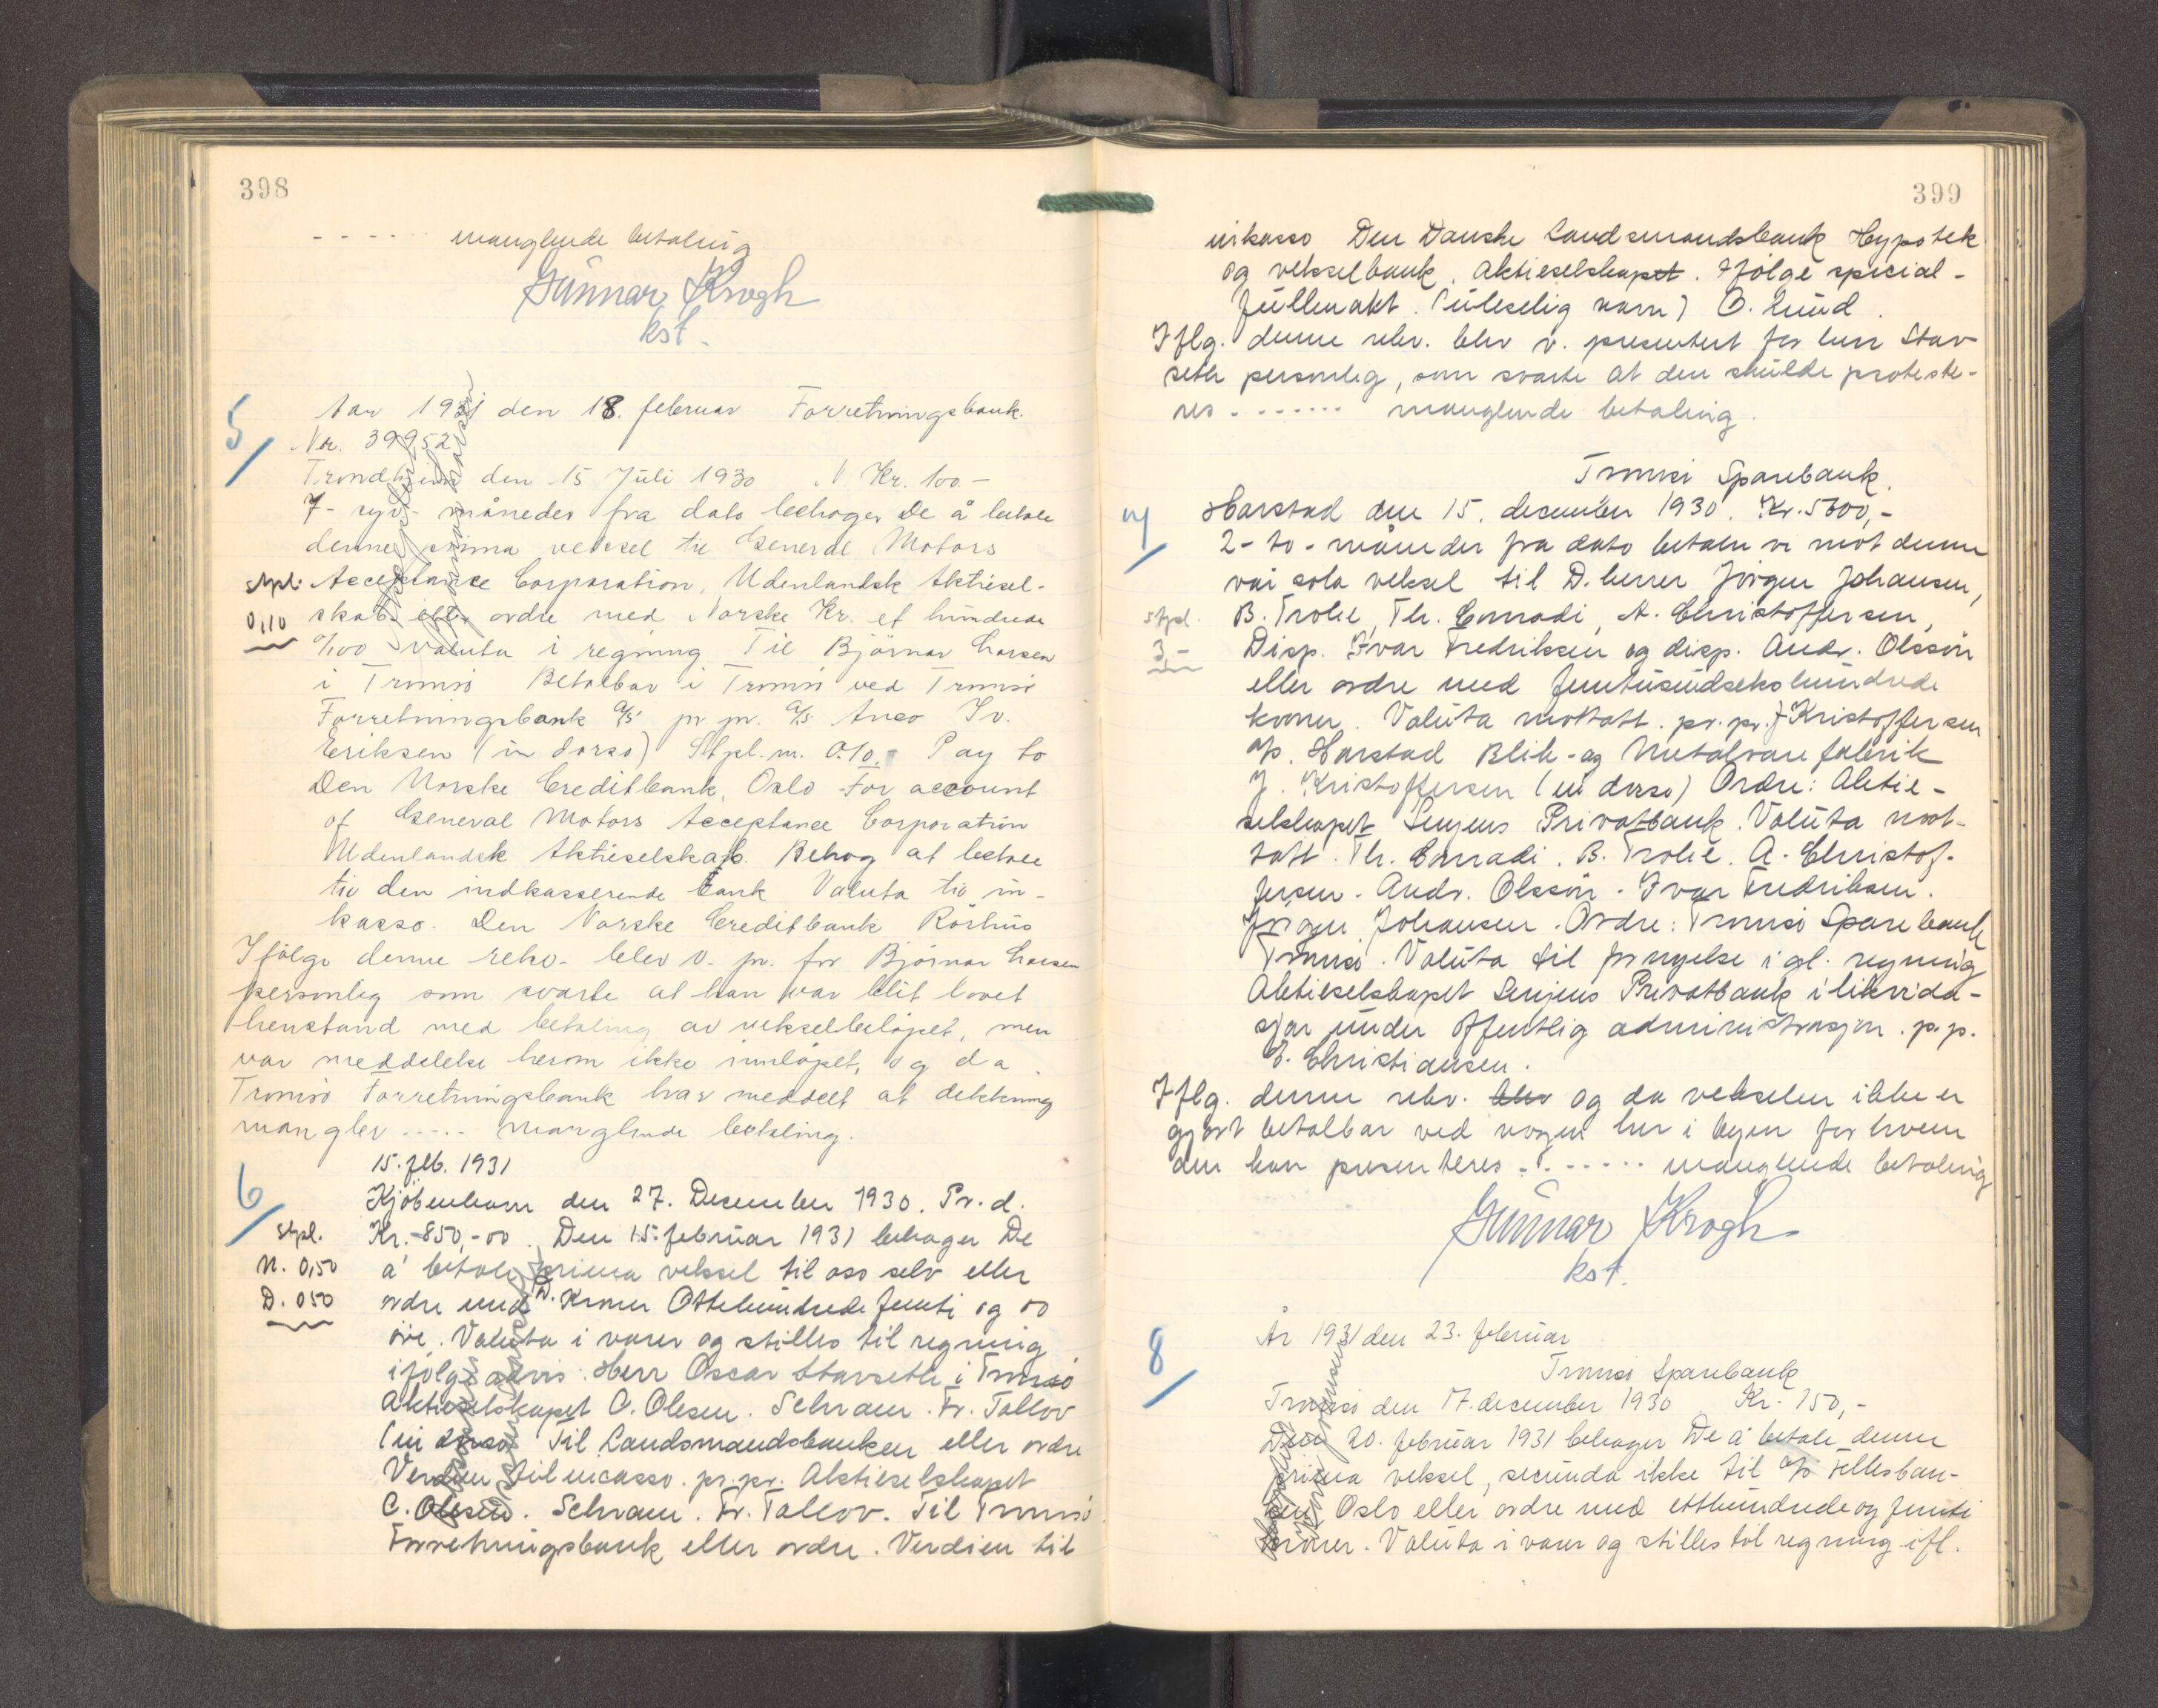 398
- - - - - manglende betaling
Gunnar Krogh
kst.
5/
Aar 1931 den 18. februar Forretningsbank.
Nr. 39952
Trondheim den 15 Juli 1930 N Kr. 100.-
7- syv- måneder fra dato behager De å betale
denne prima veksel til General Motors
stpl. Acceptance Corporation, Udenlandsk Aktiesel-
0,10 skab, eller ordre med Norske Kr. et hundrede
0/100 valuta i regning Til Bjørnar Larsen
i Tromsø Betalbar i Tromsø ved Tromsø
Forretningsbank A/S pr. pr. A/S Anco Iv.
Eriksen (in dorso) Stpl. m. 0.10. Pay to
Den Norske Creditbank, Oslo For account
of General Motors Acceptance Corporation
Udenlandsk Aktieselskab. Behag at betale
til den indkasserende bank Valuta til in-
kasso. Den Norske Creditbank Rørhus
Ifølge denne rekv. blev v. pr. for Bjørnar Larsen
personlig som svarte at han var blit lovet
henstand med betaling av vekselbeløpet, men
var meddelelse herom ikke innløpet, og da
Tromsø Forretningsbank har meddelt at dekkning
mangler ..... manglende betaling.
15. feb. 1931
6/
Kjøbenhavn den 27. Desember 1930. Pr. d.
stpl. Kr. 850,-00. Den 15. februar 1931 behager De
N. 0,50 å betale prima veksel til oss selv eller
D. 050 ordre med D. Kroner Ottehundrede femti og 00
øre. Valuta i varer og stilles til regning
ifølge advis. Herr Oscar Stavseth i Tromsø
Aktieselskapet C. Olesen. Schram. Fr. Tallov
(in dorso) Til Landsmandsbanken eller ordre
Verdien til incasso. pr. pr. Aktieselskapet
C. Olesen. Schram. Fr. Tallov. Til Tromsø
Forretningsbank eller ordre. Verdien til
399
inkasso Den Danske Landsmandsbank Hypotek
og vekselbank, Aktieselskapet. Ifølge spicial-
fullmakt. (uleselig navn) O. Lund.
Iflg. denne rekv. blev v. presentert for herr Stav-
seth personlig, som svarte at den skulde proteste-
res ........ manglende betaling.
Tromsø Sparebank.
7/
Harstad den 15. desember 1930. Kr. 5600,-
2- to- måneder fra dato betaler vi mot denne
vår sola veksel til D. herrer Jørgen Johansen,
stpl. B. Trolie, Th. Conradi, A. Christoffersen,
3,- Disp. Ivar Fredriksen og disp. Andr. Olssøn
eller ordre med femtusindsekshundrede
kroner. Valuta mottatt. pr. pr. J Kristoffersen
A/S. Harstad Blik- og Metalvarefabrik
J. Kristoffersen (in dorso) Ordre: Aktie-
selskapet Senjens Privatbank. Valuta mot-
tatt. Th. Conradi. B. Trolie. A. Christof-
fersen. Andr. Olssøn. Ivar Fredriksen.
Jørgen Johansen. Ordre: Tromsø Sparebank
Tromsø. Valuta til fornyelse i gl. regning
Aktieselskapet Senjens Privatbank i likvida-
sjon under offentlig administrasjon. p.p.
E. Christiansen.
Iflg. denne rekv. blev og da vekselen ikke er
gjort betalbar ved nogen her i byen for hvem
den kan presenteres ........ manglende betaling
Gunnar Krogh
kst.
8/
År 1931 den 23. februar
Tromsø Sparebank
Tromsø den 17. december 1930 Kr. 150,-
Den 20. februar 1931 behager De å betale denne
prima veksel, secunda ikke til A/S Fellesban-
ken Oslo eller ordre med etthundrede og femti
kroner. Valuta i varer og stilles tol regning ifl.